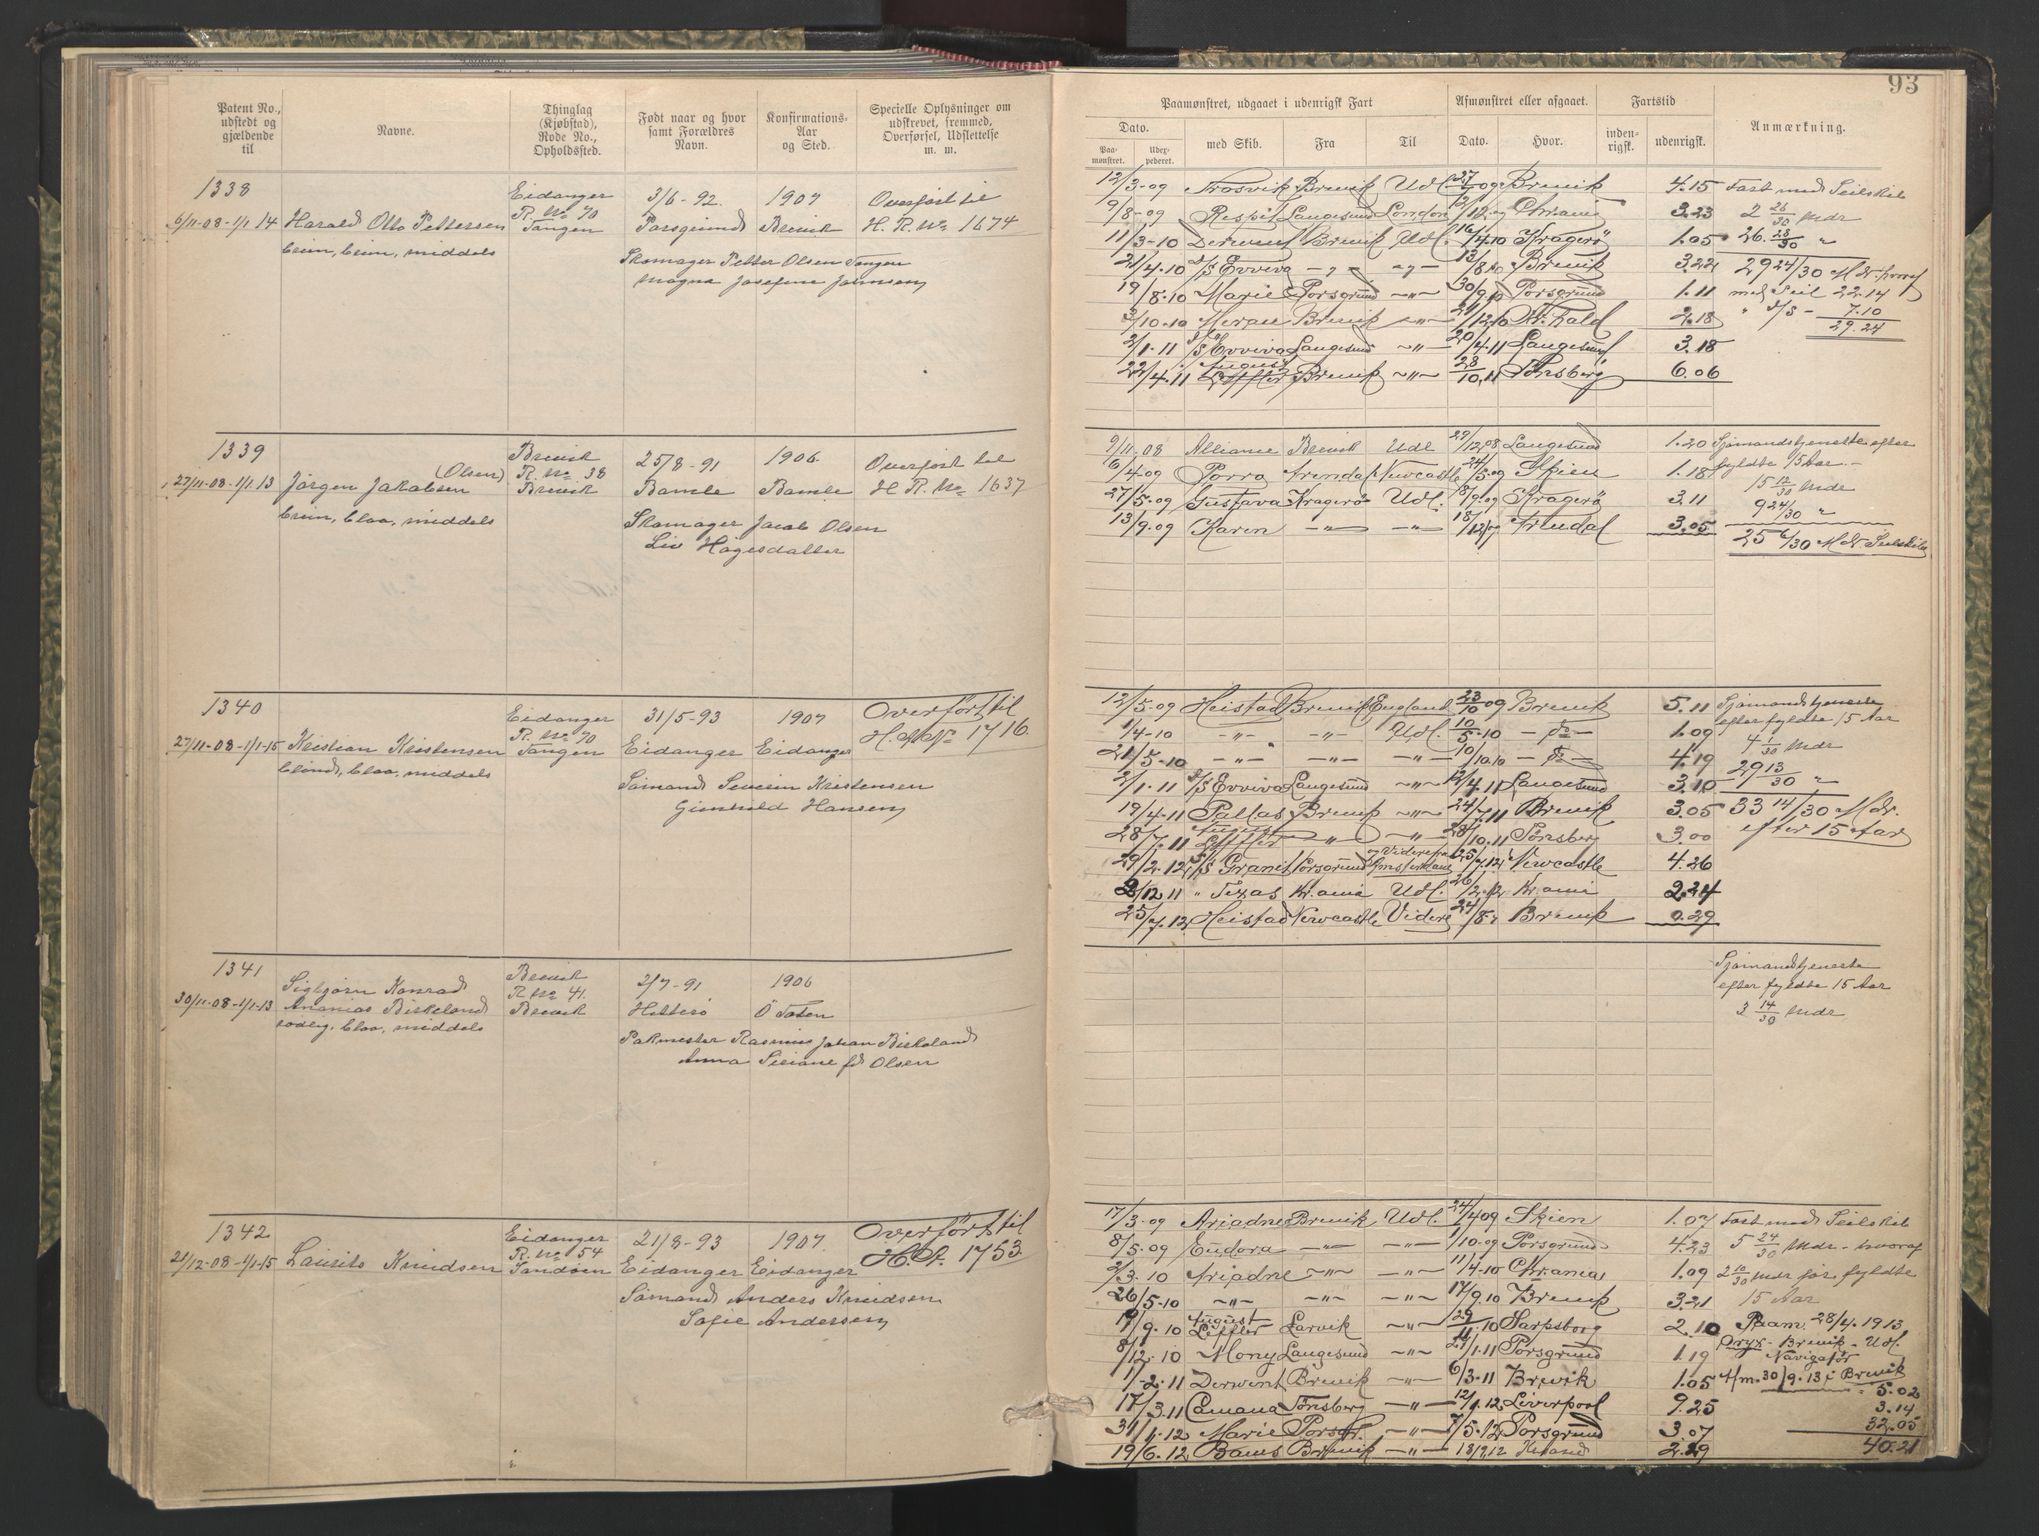 93
Patent No., udstedt og gjældende til
Navne.
Thinglag (Kjøbstad), Rode No., Opholdssted.
Født naar og hvor samt Forældres Navn.
Konfirmations-Aar og Sted.
Specielle Oplysninger om udskrevet, fremmed, Overførsel, Udslettelse m. m.
Paamønstret, udgaaet i udenrigsk Fart
Afmønstret eller afgaaet.
Fartstid
Anmærkning.
Dato.
Paa-mønstret.
Udex-pederet.
med Skib.
Fra
Til
Dato.
Hvor.
inden-rigsk.
udenrigsk.
1338
6/11-08-1/1 14 Harald Otto Pettersen
brun, brun, middels
Eidanger
R. No 70
Tangen
3/6-92.
Porsgrund
1907
Brevik
Overført til
H. R. No 1674
Skomager Petter Olsen Tangen
Magna Josefine Johnsen
12/3-09 Trosvik Brevik Udl. 27/7 09 Brevik 4.15 Fart med Seilskib
9/8-09 Respit Langesund London 2/12 09 Chrania 3.23 2 26/30 Mdr
11/3-10 Derwent Brevik Udl. 16/4.10 Kragerø 1.05 26.28/30 "
21/4.10 D/S Evviva -„- -„- 13/8 10 Brevik 3.22 29 24/30 Mdr. hvoraf
19/8.10 Marie Porsgrund -„- 30/9.10 Porsgrund 1.11 med Seil 22.14
3/10-10 Meran Brevik -„- 21/12.10 Kr. hald 2.18 " D/S - 7.10
29.24
2/1.11 D/S Evviva Langesund -„- 20/4.11 Langesund 3.18
22/4.11 August Leffler Brevik -„- 28/10.11 Tønsberg 6.06
1339
27/11-08-1/1 13 Jørgen Jakobsen (Olsen)
brun, blaa, middels
Brevik
R. No 38
Brevik
25/8-91
Bamle
1906
Bamle
Overført til
H. R. No 1637
Skomager Jacob Olsen
Liv Hågesdatter
9/11.08 Alliance Brevik Udl 29/12.08 Langesund 1.20 Sjømandstjeneste efter
6/4.09 Porra Arendal Newcastle 24/5.09 Skien 1.18 fyldte 15 Aar.-
15 12/30 Mdr
27/5.09 Gustava Kragerø Udl. 18/9.09 Kragerø 3.11 9 24/30 "
13/9.09 Karen -„- -„- 18/12 09 Arendal 3.05 25 6/30 Mdr. Seilskib
1340
27/11-08-1/1-15 Kristian Kristensen
blond, blaa, middels
Eidanger
R. No 70
Tangen
31/5-93
Eidanger
1907
Eidanger
Overført til
H. R. No 1716
Sømand Severin Kristensen
Gunhild Hansen
12/5-09 Heistad Brevik England 23/10 09 Brevik 5.11 Sjømandstjeneste
efter fyldte 15 Aar
1/4-10 -„- -„- Udl. 10/5.10 - do - 1.09 4 1/30 Mdr
21/5-10 -„- " -„- -„- 10/10.10 - do - 4.19 29 13/30 "
2/1.11 D/S Evviva Langesund -„- 12/4.11 Langesund 3.10
19/4-11 Pallas Brevik -„- 24/7.11 Brevik 3.05 33 14/30 Mdr.
efter 15 Aar
28/7.11 August Leffler " -„- 28/10.11 Tønsberg 3.00
29/2.12 D/S Granit Porsgrund og Videre fra Amsterdam 25/7.12 Newcastle 4.26
2/12.11 " Texas Kr.ania Udl. 26/2.12 Kr.ania 2.24
25/7.12 Heistad Newcastle Videre 24/8.- Brevik 0.29
1341
30/11-08-1/1-13 Sigbjørn Konrad
Ananias Birkeland
rødlig, blaa, middels
Brevik
R No 41.
Brevik
2/7-91
Hitterø
1906
Ø Toten
Pakmester Rasmus Johan Birkeland
Anna Sieiane fd Olsen
Sjømandstjeneste
efter fyldte 15 Aar
3 14/30 Mdr
1342
21/12-08-1/1-15 Laurits Knudsen
Eidanger
R. No 54
Sandøen
21/8-93
Eidanger
1907.
Eidanger
Overført til
H. A. 1753
Sømand Anders Knudsen
Sofie Andersen
17/3-09 Ariadne Brevik Udl. 24/4 09 Skien 1.07 Fart med Seilskib
8/5.09 Eudora -„- -„- 1/10.09 Porsgrund 4.23 5 24/30 Mdr - hvoraf
2/3.10 Ariadne -„- -„- 11/4.10 Chrania 1.09 2 10/30 Mdr før fyldte
26/5-10 -„- -„- -„- 17/9.10 Brevik 3.21 15 Aar
19/9.10 August Leffler Larvik -„- 29/11.10 Sarpsborg 2.10 Paam. 28/4.1913
8/12.10 Mony Langesund -„- 27/1.11 Porsgrund 1.19 Oryx - Brevik - Udl.
Navigatør
1/2.11 Derwent Brevik -„- 6/3.11 Brevik 1.05 Afm. 30/9.13 i Brevik
5.02
17/3.11 Camana Tønsberg -„- 12/1.12 Liverpool 9.25 3.14
31/1.12 Marie Porsgr. -„- 7/5.12 Porsgrund 3.07 32.05
19/6.12 Bams Brevik -„- 18/9 12 2.29 40.21